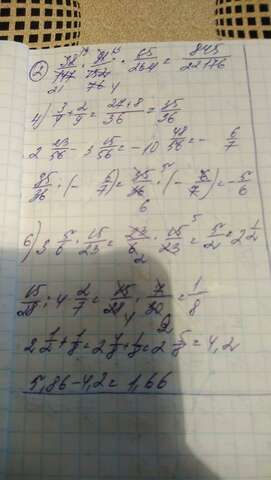 ② 38/147 · 91/152 · 65/264 = 845/22176
4) 3/4 + 2/9 = 27+8/36 = 35/36
2 23/56 - 3 15/56 = -10 48/56 = - 6/7
35/36 · (- 6/7) = 35/36 · (- 6/7) = - 5/6
6) 3 5/6 · 15/23 = 23/6 · 15/23 = 5/2 = 2 1/2
15/28 : 4 2/7 = 15/28 · 7/30 = 1/8
2 1/2 + 1/8 = 2 4/8 + 1/8 = 2 5/8 = 4,2
5,86 - 4,2 = 1,66